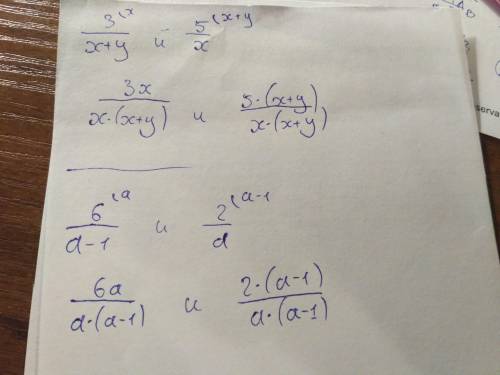 3^{(x} / x+y и 5^{(x+y} / x
3x / x·(x+y) и 5·(x+y) / x·(x+y)
6^{(a} / a-1 и 2^{(a-1} / a
6a / a·(a-1) и 2·(a-1) / a·(a-1)